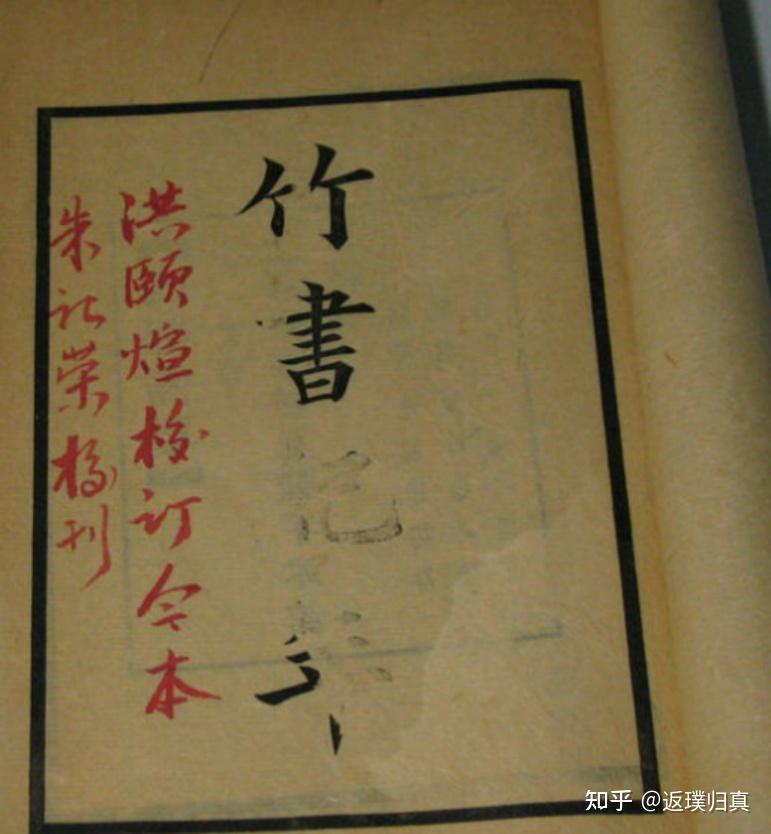 竹書紀年
洪頤煊校訂今本
朱記榮校刊
知乎 @返璞归真